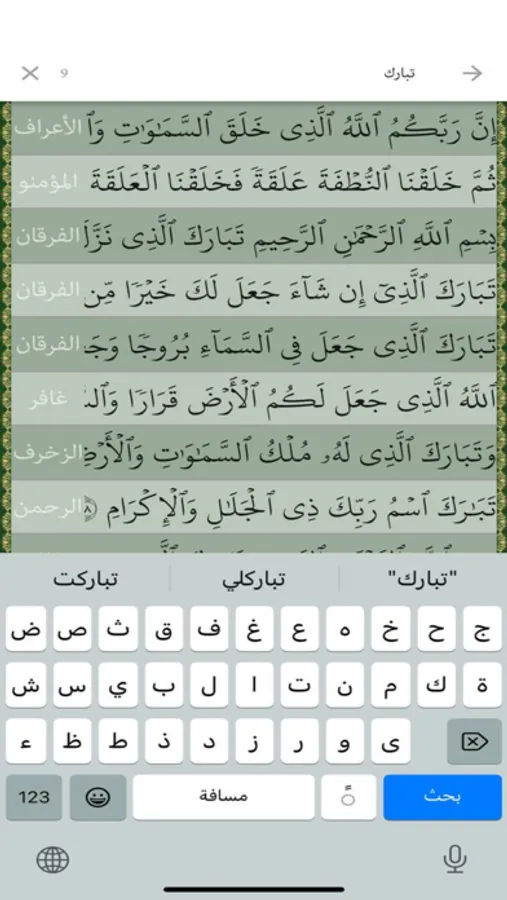 تبارك ٩
إِنَّ رَبَّكُمُ ٱللَّهُ ٱلَّذِى خَلَقَ ٱلسَّمَـٰوَٰتِ وَٱ الأعراف
ثُمَّ خَلَقْنَا ٱلنُّطْفَةَ عَلَقَةً فَخَلَقْنَا ٱلْعَلَقَةَ المؤمنو
بِسْمِ ٱللَّهِ ٱلرَّحْمَـٰنِ ٱلرَّحِيمِ تَبَارَكَ ٱلَّذِى نَزَّلَ الفرقان
تَبَارَكَ ٱلَّذِىٓ إِن شَآءَ جَعَلَ لَكَ خَيْرًا مِّن الفرقان
تَبَارَكَ ٱلَّذِى جَعَلَ فِى ٱلسَّمَآءِ بُرُوجًا وَجَ الفرقان
ٱللَّهُ ٱلَّذِى جَعَلَ لَكُمُ ٱلْأَرْضَ قَرَارًا وَٱلـ غافر
وَتَبَارَكَ ٱلَّذِى لَهُۥ مُلْكُ ٱلسَّمَـٰوَٰتِ وَٱلْأَرْضِ الزخرف
تَبَـٰرَكَ ٱسْمُ رَبِّكَ ذِى ٱلْجَلَـٰلِ وَٱلْإِكْرَامِ ٧٨ الرحمن
"تبارك" تباركلي تباركت
ج ح خ ه ع غ ف ق ث ص ض
ة ك م ن ت ا ل ب ي س ش
ى و ر ز د ذ ط ظ ء
بحث مسافة 123